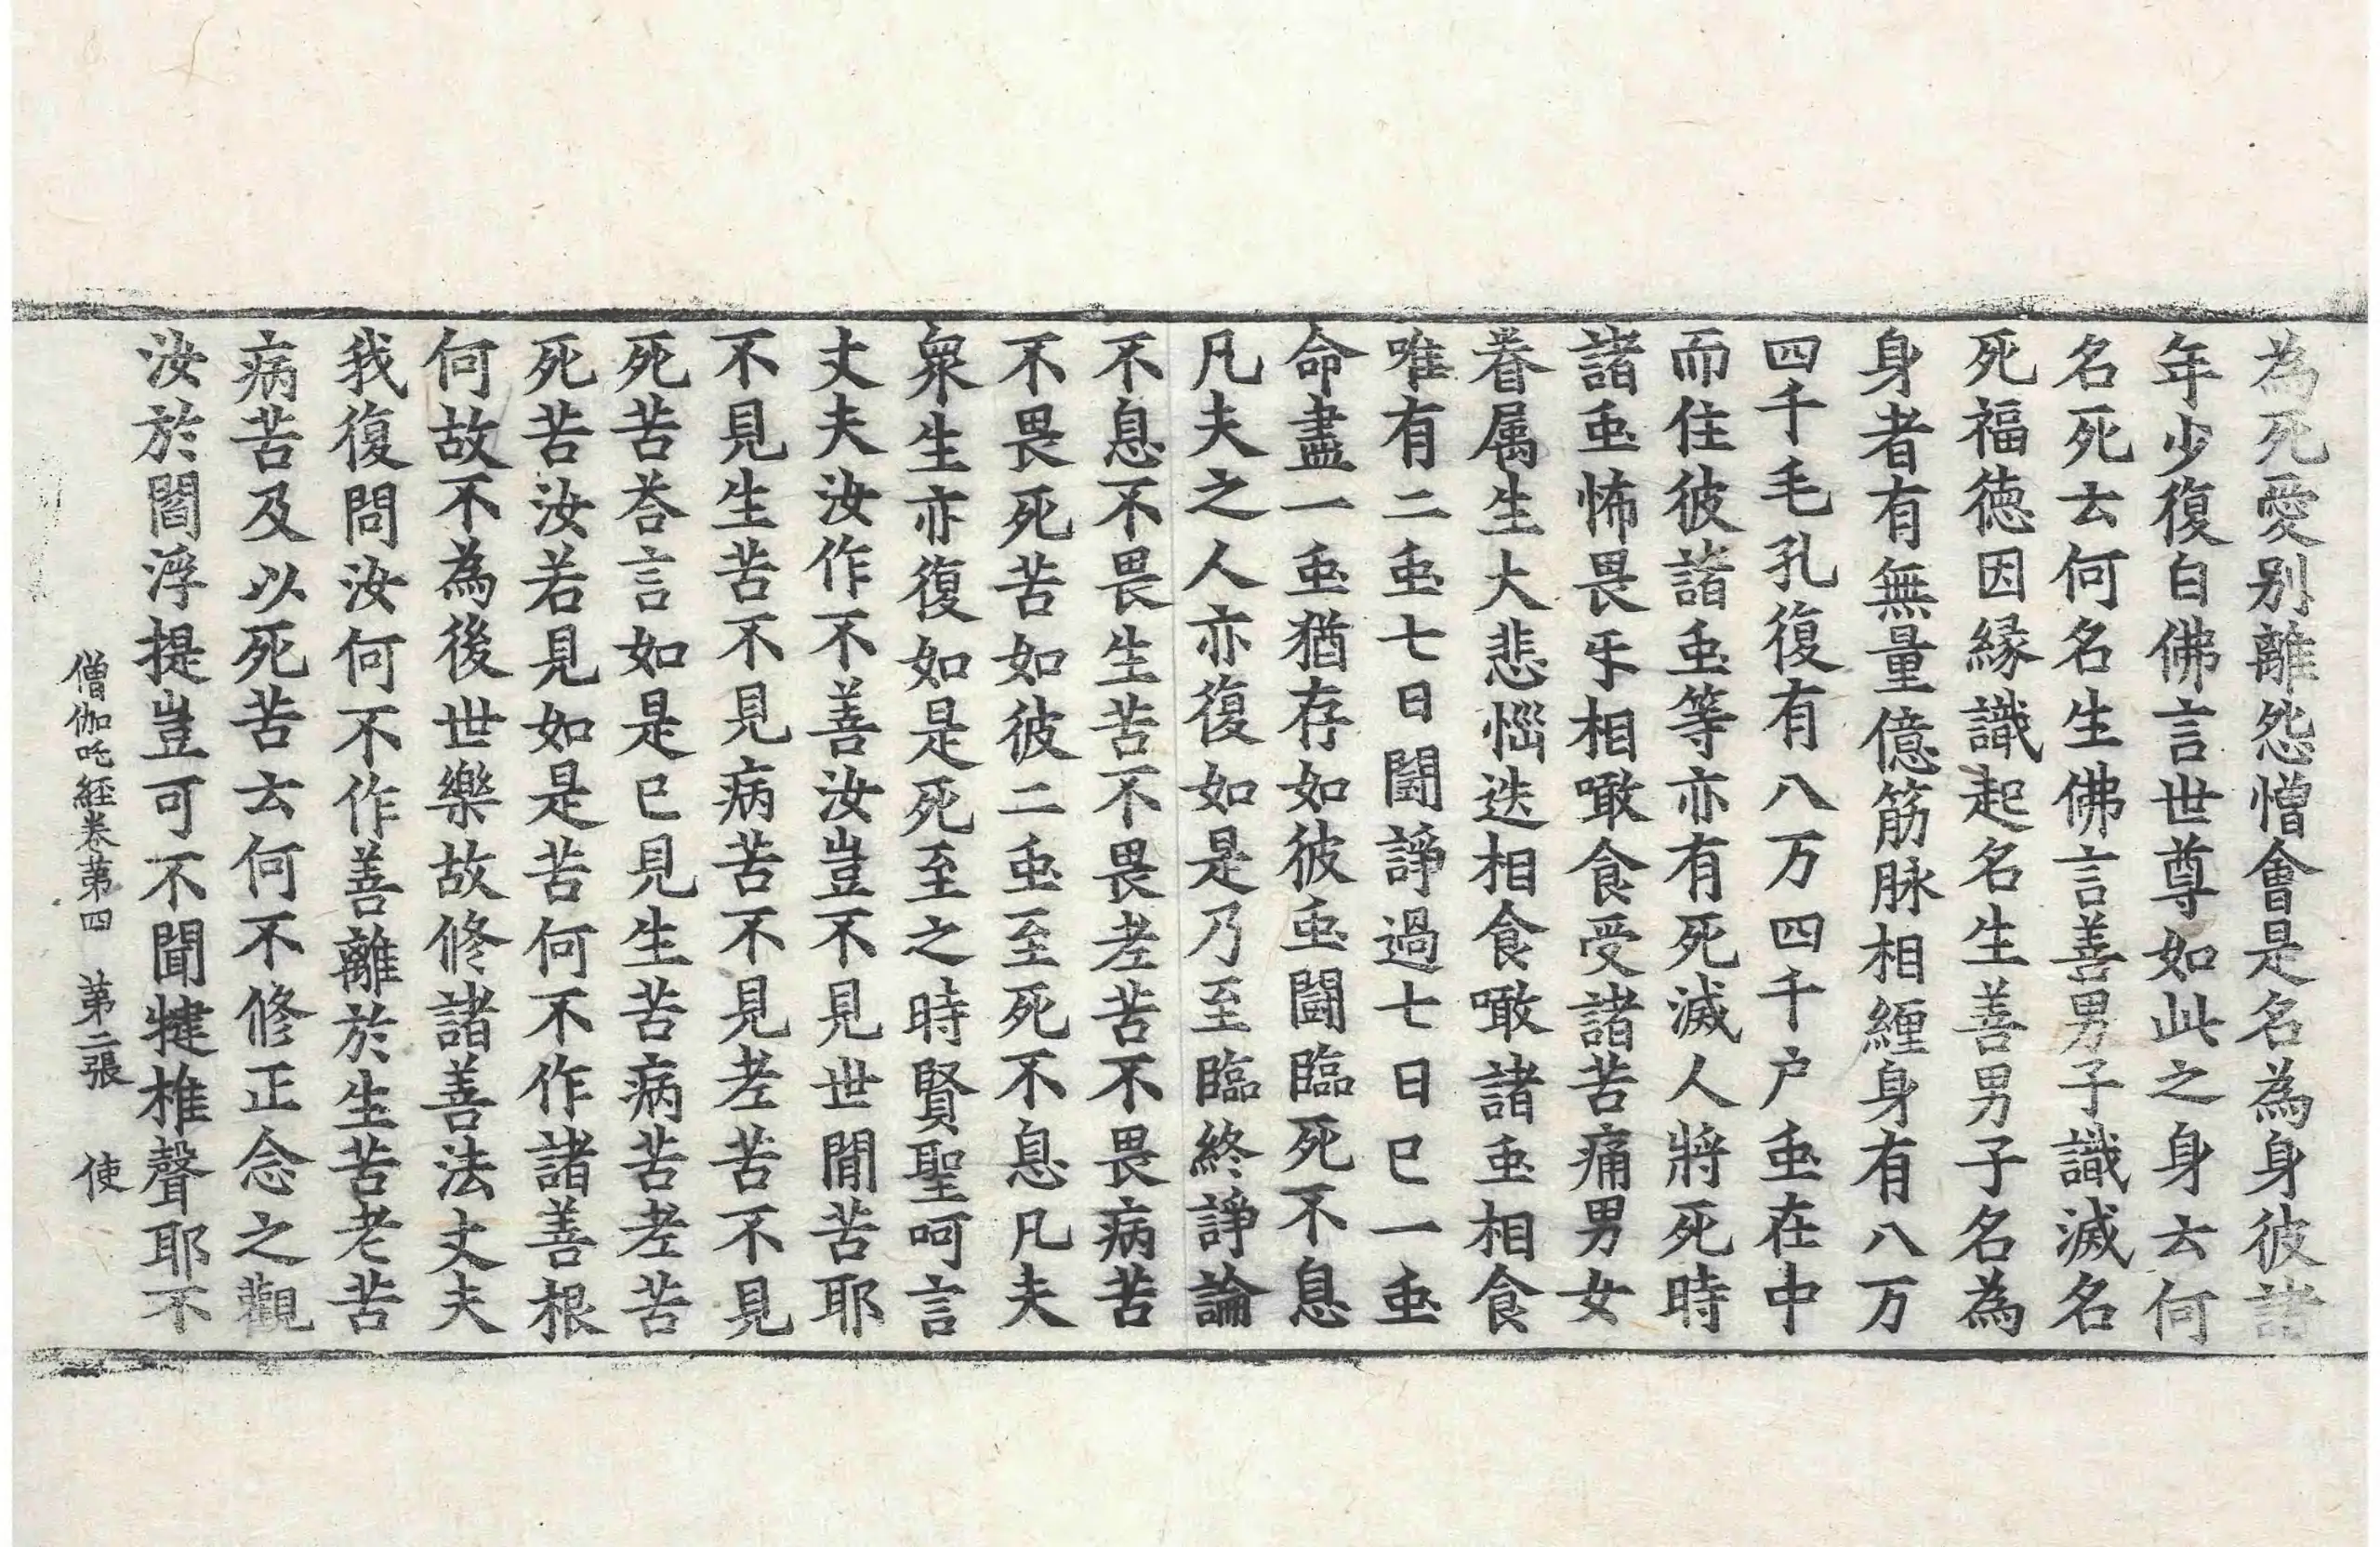 為死愛別離怨憎會是名為身彼諸
年少復白佛言世尊如此之身云何
名死云何名生佛言善男子識滅名
死福德因緣識起名生善男子名為
身者有無量億筋脉相纏身有八万
四千毛孔復有八万四千户䖝在中
而住彼諸䖝等亦有死滅人將死時
諸䖝怖畏㸦相噉食受諸苦痛男女
眷属生大悲惱迭相食噉諸䖝相食
唯有二䖝七日鬪諍過七日已一䖝
命盡一䖝猶存如彼䖝鬪臨死不息
凡夫之人亦復如是乃至臨終諍論
不息不畏生苦不畏老苦不畏病苦
不畏死苦如彼二䖝至死不息凡夫
衆生亦復如是死至之時賢聖呵言
丈夫汝作不善汝豈不見世間苦耶
不見生苦不見病苦不見老苦不見
死苦荅言如是已見生苦病苦老苦
死苦汝若見如是苦何不作諸善根
何故不為後世樂故修諸善法丈夫
我復問汝何不作善離於生苦老苦
病苦及以死苦云何不修正念之觀
汝於閻浮提豈可不聞犍椎聲耶不
僧伽吒経卷苐四　苐二張　使